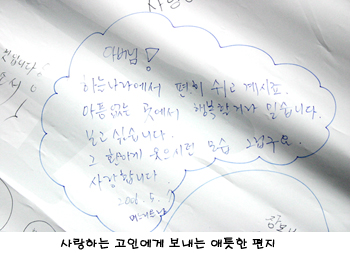 아버님!
하늘나라에서 편히 쉬고 계시죠.
아픔없는 곳에서 행복할거라 믿습니다.
보고 싶습니다.
그 환하게 웃으시던 모습 그립구요.
사랑합니다
사랑하는 고인에게 보내는 애틋한 편지